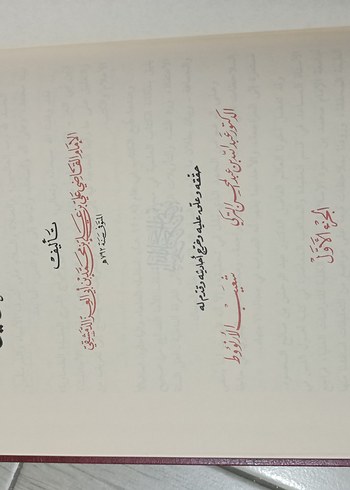 تأليف
الإمام القاضي علي بن علي بن محمد بن أبي العز الدمشقي
المتوفى سنة ٧٩٢ هـ
حققه وعلق عليه وخرج أحاديثه وقدم له
الدكتور عبد الله بن عبد المحسن التركي شعيب الأرنؤوط
الجزء الأول